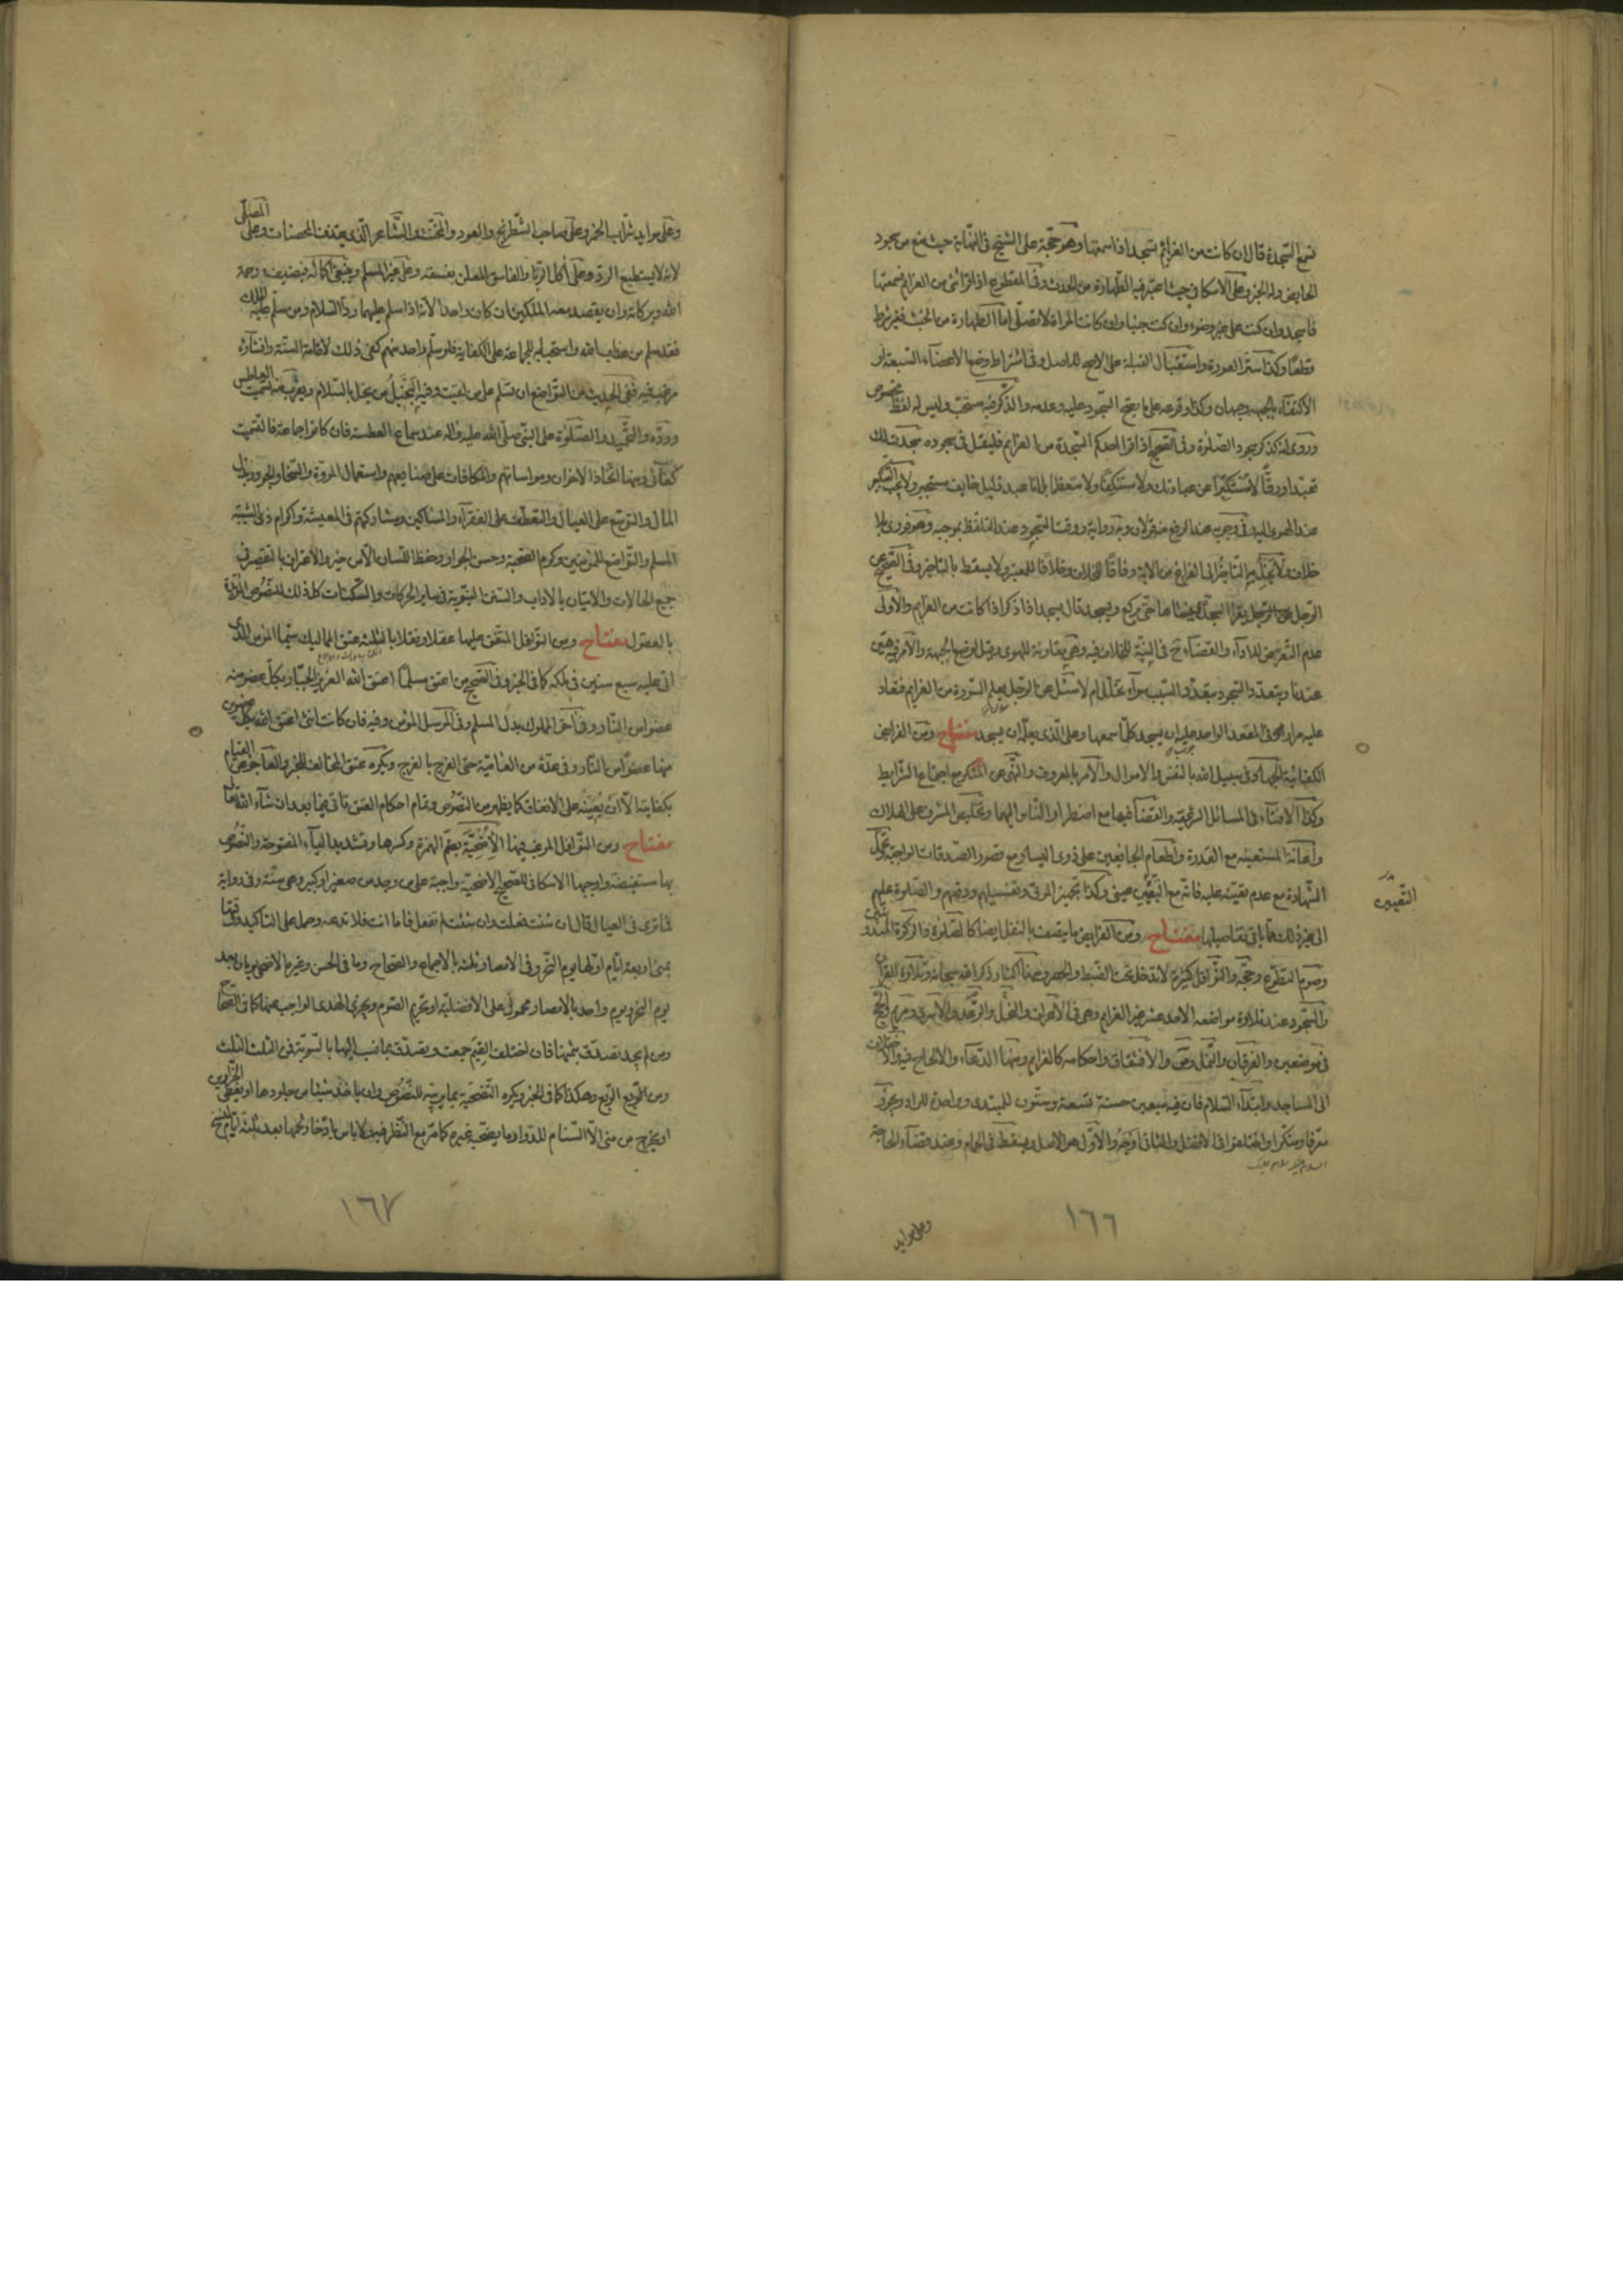 تسمع السجدة قال ان كانت من العزائم تسجد اذا سمعتها وهو حجة على الشيخ في النهاية حيث منع من سجود
الحايض وله الخبر وعلى الاسكافي حيث اعتبر فيه الطهارة من الحدث وفي المقطوع اذا قرأ شئ من العزايم فسمعتها
فاسجد وان كنت على غير وضوء وان كنت جنبا وان كانت المرأة لا تصلى اما الطهارة من الخبث فغير شرط
قطعا وكذا ستر العورة واستقبال القبلة على الاصح للاصل وفي اشتراط وضع الاعضاء السبعة او
الاكتفاء بالجبهة وجهان وكذا وقوعه على ما يصح السجود عليه وعدمه والذكر فيه مستحب وليس له لفظ مخصوص
وروى انه كذكر سجود الصلوة وفي الصحيح اذا قرأ احدكم السجدة من العزايم فليقل في سجوده سجدت لك
تعبدا ورقا لا مستكبرا عن عبادتك ولا مستنكفا ولا متعظما بل انا عبد ذليل خايف مستجير ولا يجب التكبير
عند الهوى اليه وفي وجوبه عند الرفع منه قولان وبه رواية ووقت السجود عند التلفظ بموجبه وهو فورى بلا
خلاف ولا يجوز التاخير الى الفراغ من الآية وفاقا للخلاف وخلافا للمعتبر ولا يسقط بالتاخير وفي الصحيح عن
الرجل يقرأ السجدة فينساها حتى يركع ويسجد قال يسجد اذا ذكر اذا كانت من العزايم والاولى
عدم التعرض للاداء والقضاء ح في النية للخلاف فيه وهي مقارنة للهوى وقيل لوضع الجبهة والامر فيه هين
عندنا ويتعدد السجود بتعدد السبب سواء تخلل ام لا سئل عن الرجل يعلم السورة من العزايم فتعاد
عليه مرارا في المقعد الواحد عليه ان يسجد كلما سمعها وعلى الذي يعلمه ان يسجد مفتاح ومن الفرايض
الكفائية الجهاد في سبيل الله بالنفس والاموال والامر بالمعروف والنهى عن المنكر مع اجتماع الشرايط
وكذا الافتاء في المسائل الشرعية والقضاء فيها مع اضطرار الناس اليهما وتخليص المشرف على الهلاك
واعانة المستعينه مع القدرة واطعام الجايعين على ذوى اليسار مع قصور الصدقات الواجبة وتحمل
الشهادة مع عدم تعينه عليه فانه مع التعين عينى وكذا تجهيز الموتى وتغسيلهم ودفنهم والصلوة عليهم
التعيين
الى غير ذلك مما ياتى تفاصيلها مفتاح ومن الفرايض ما يتصف بالنفل ايضا كالصلوة والزكوة المندوبتين
وصوم التطوع وحجه والنوافل كثيرة لا تدخل تحت الضبط والحصر منها اكثار ذكر الله سبحانه وتلاوة القرآن
والسجود عند تلاوة مواضعه الاحد عشر غير العزايم وهي في الاعراف والنحل والرعد والاسرى ومريم والحج
في موضعين والفرقان والنمل وص والانشقاق واحكامه كالعزايم ومنها الدعاء والالحاح فيه والاختلاف
الى المساجد وابتداء السلام فان فيه سبعين حسنة تسعة وستون للمبتدى وواحدة للراد ويجوز
معرفا ومنكرا واختلفوا في الافضل والثاني اوجه والاول هو الاصل ويسقط في الحمام وعند قضاء الحاجة
١٦٦
وعلى موايد
وعلى موايد شراب الخمر وعلى صاحب الشطرنج والعود والمخنث والشاعر الذي يقذف المحصنات وعلى المصلى
لانه لا يستطيع الرد وعلى آكل الربا والفاسق المعلن بفسقه وعلى غير المسلم وينبغى اكماله فيضيف ورحمة
الله وبركاته وان يقصد معه الملكين ان كان واحدا لانه اذا سلم عليهما ردا السلام ومن سلم عليه الملك
فقد سلم من عذاب الله واستحبابه للجماعة على الكفاية فلو سلم واحد منهم كفى ذلك لاقامة السنة وافشاؤه
مرغب فيه ففي الحديث من التواضع ان تسلم على من لقيت وفيه البخيل من بخل بالسلام ويقرب منه تسميت العاطس
ورده والتحميد والصلوة على النبي صلى الله عليه وآله عند سماع العطسة فان كانوا جماعة فالتسميت
كفائى ومنها اتخاذ الاخوان ومواساتهم والمكافات على صنايعهم واستعمال المروة والسخا والجود وبذل
المال والتوسع على العيال والتعطف على الفقراء والمساكين ومشاركتهم في المعيشة واكرام ذى الشيبة
المسلم والتواضع للمؤمنين وكرم الصحبة وحسن الجوار وحفظ اللسان الا من خير والاعتراف بالتقصير في
جميع الحالات والاتيان بالآداب والسنن النبوية في ساير الحركات والسكنات كل ذلك للنصوص المؤيدة
بالعقول مفتاح ومن النوافل المتفق عليها عقلا ونقلا بالثلثة عتق المماليك سيما المؤمن الذى
اتى عليه سبع سنين في ملكه كما في الخبر وفي الصحيح من اعتق مسلما اعتق الله العزيز الجبار بكل عضو منه
عضوا من النار وفي آخر المملوك بدل المسلم وفي المرسل المؤمن وفيه فان كانت انثى اعتق الله بكل عضوين
منها عضوا من النار وفي عدة من العامية حتى الفرج بالفرج ويكره عتق المخالف للخبر والعاجز عن القيام
بكفايته الا ان يعينه على الانفاق كما يظهر من النصوص وتمام احكام العتق تاتى فيما بعد ان شاء الله تعالى
مفتاح ومن النوافل المرغب فيها الاضحية بضم الهمزة وكسرها وتشديد الياء المفتوحة والنصوص
بها مستفيضة واوجبها الاسكافي للصحيح الاضحية واجبة على من وجد من صغير او كبير وهي سنة وفي رواية
ما ترى في العيال قال ان شئت فعلت وان شئت لم تفعل فاما انت فلا تدعه وحمل على التاكيد ووقتها
بمنى اربعة ايام اولها يوم النحر وفي الامصار ثلثة بالاجماع والصحاح وما في الحسن وغيره الاضحى يومان بعد
يوم النحر ويوم واحد بالامصار محمول على الافضلية او تحريم الصوم ويجزى الهدى الواجب عنها كما في الصحاح
ومن لم يجد تصدق بثمنها فان اختلف القيم جمعت وتصدق بما نسب اليها بالسوية فمن الثلث الثلث
ومن الربع الربع وهكذا كما في الخبر ويكره التضحية بما يربيه للنصوص وان ياخذ شيئا من جلودها او يعطى الجزارين
او يخرج من منى الا السنام للدواء وما يضحيه غيره كما مر مع النظر فيه ولا باس بادخار لحمها بعد ثلثة ايام
١٦٧